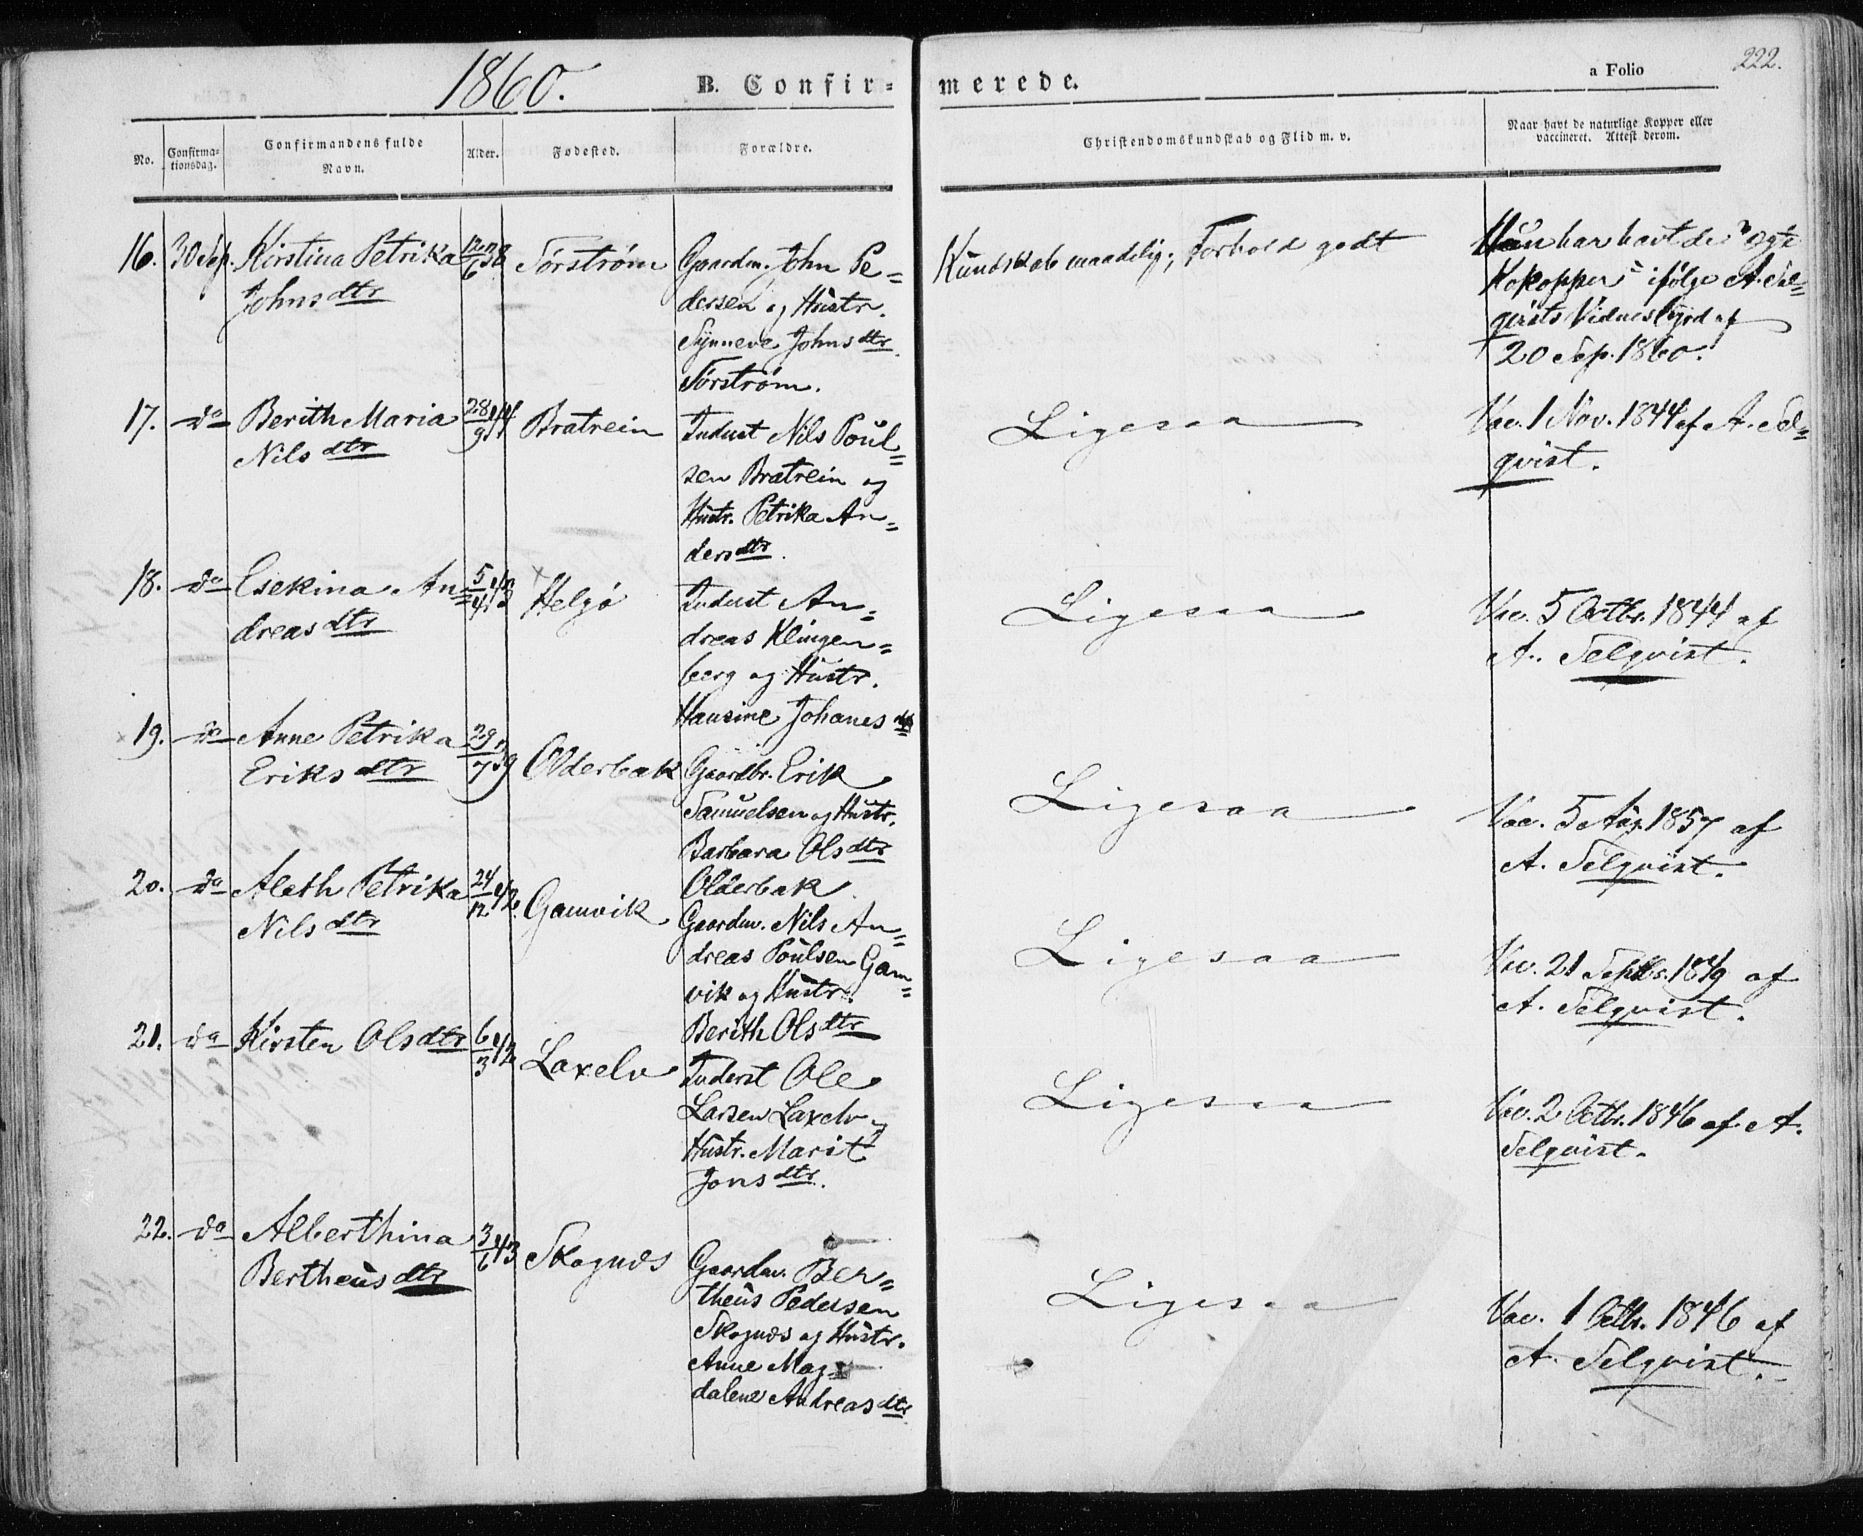 1860.
B. Confirmerede.
a Folio
222.
No.
Confirmationsdag.
Confirmandens fulde Navn.
Alder.
Fødested.
Forældre.
Christendomskundskab og Flid m. v.
Naar havt de naturlige Kopper eller vaccineret. Attest derom.
16. 30 Sep. Kirstina Petrika
Johnsdtr
12/6 38
Sørstrøm
Gaardm. John Pe=
dersen og Hustr.
Synneve Johnsdtr
Sørstrøm.
Kundskab maadelig; Forhold godt
Hun har havt de "ægte
Kokopper" ifølge A. Sel=
qvists Vidnesbyrd af
20 Sep. 1860.
17. do Berith Maria
Nilsdtr
28/9 44
Bratrein
Inderst Nils Poul=
sen Bratrein og
Hustr. Petrika An=
dersdtr.
Ligesaa
Vac. 1 Nov. 1844 af A. Sel=
qvist.
18. do Esekina An=
dreasdtr
5/4 43
Helgø
Inderst An=
dreas Klingen=
berg og Hustr.
Hansine Johanesdtr
Ligesaa
Vac. 5 Octbr. 1844 af
A. Selqvist.
19. do Anne Petrika
Eriksdtr
29/7 39
Olderbak
Gaardbr. Erik
Samuelsen og Hustr.
Barbara Olsdtr
Olderbak
Ligesaa
Vac. 5 Aug. 1857 af
A. Selqvist.
20. do Aleth Petrika
Nilsdtr
24/12 42.
Gamvik
Gaardm. Nils An=
dreas Poulsen Gam=
vik og Hustr.
Berith Olsdtr
Ligesaa
Vac. 21 Septbr. 1849 af
A. Selqvist.
21. do Kirsten Olsdtr
6/3 42
Laxelv
Inderst Ole
Larsen Laxelv og
Hustr. Marit
Jonsdtr.
Ligesaa
Vac. 2 Octbr. 1846 af A.
Selqvist.
22. do Alberthina
Bertheusdtr
3/6 43
Skognæs
Gaardm. Ber=
theus Pedersen
Skognæs og Hustr.
Anne Mag=
dalene Andreasdtr
Ligesaa
Vac. 1 Octbr. 1846 af
A. Selqvist.